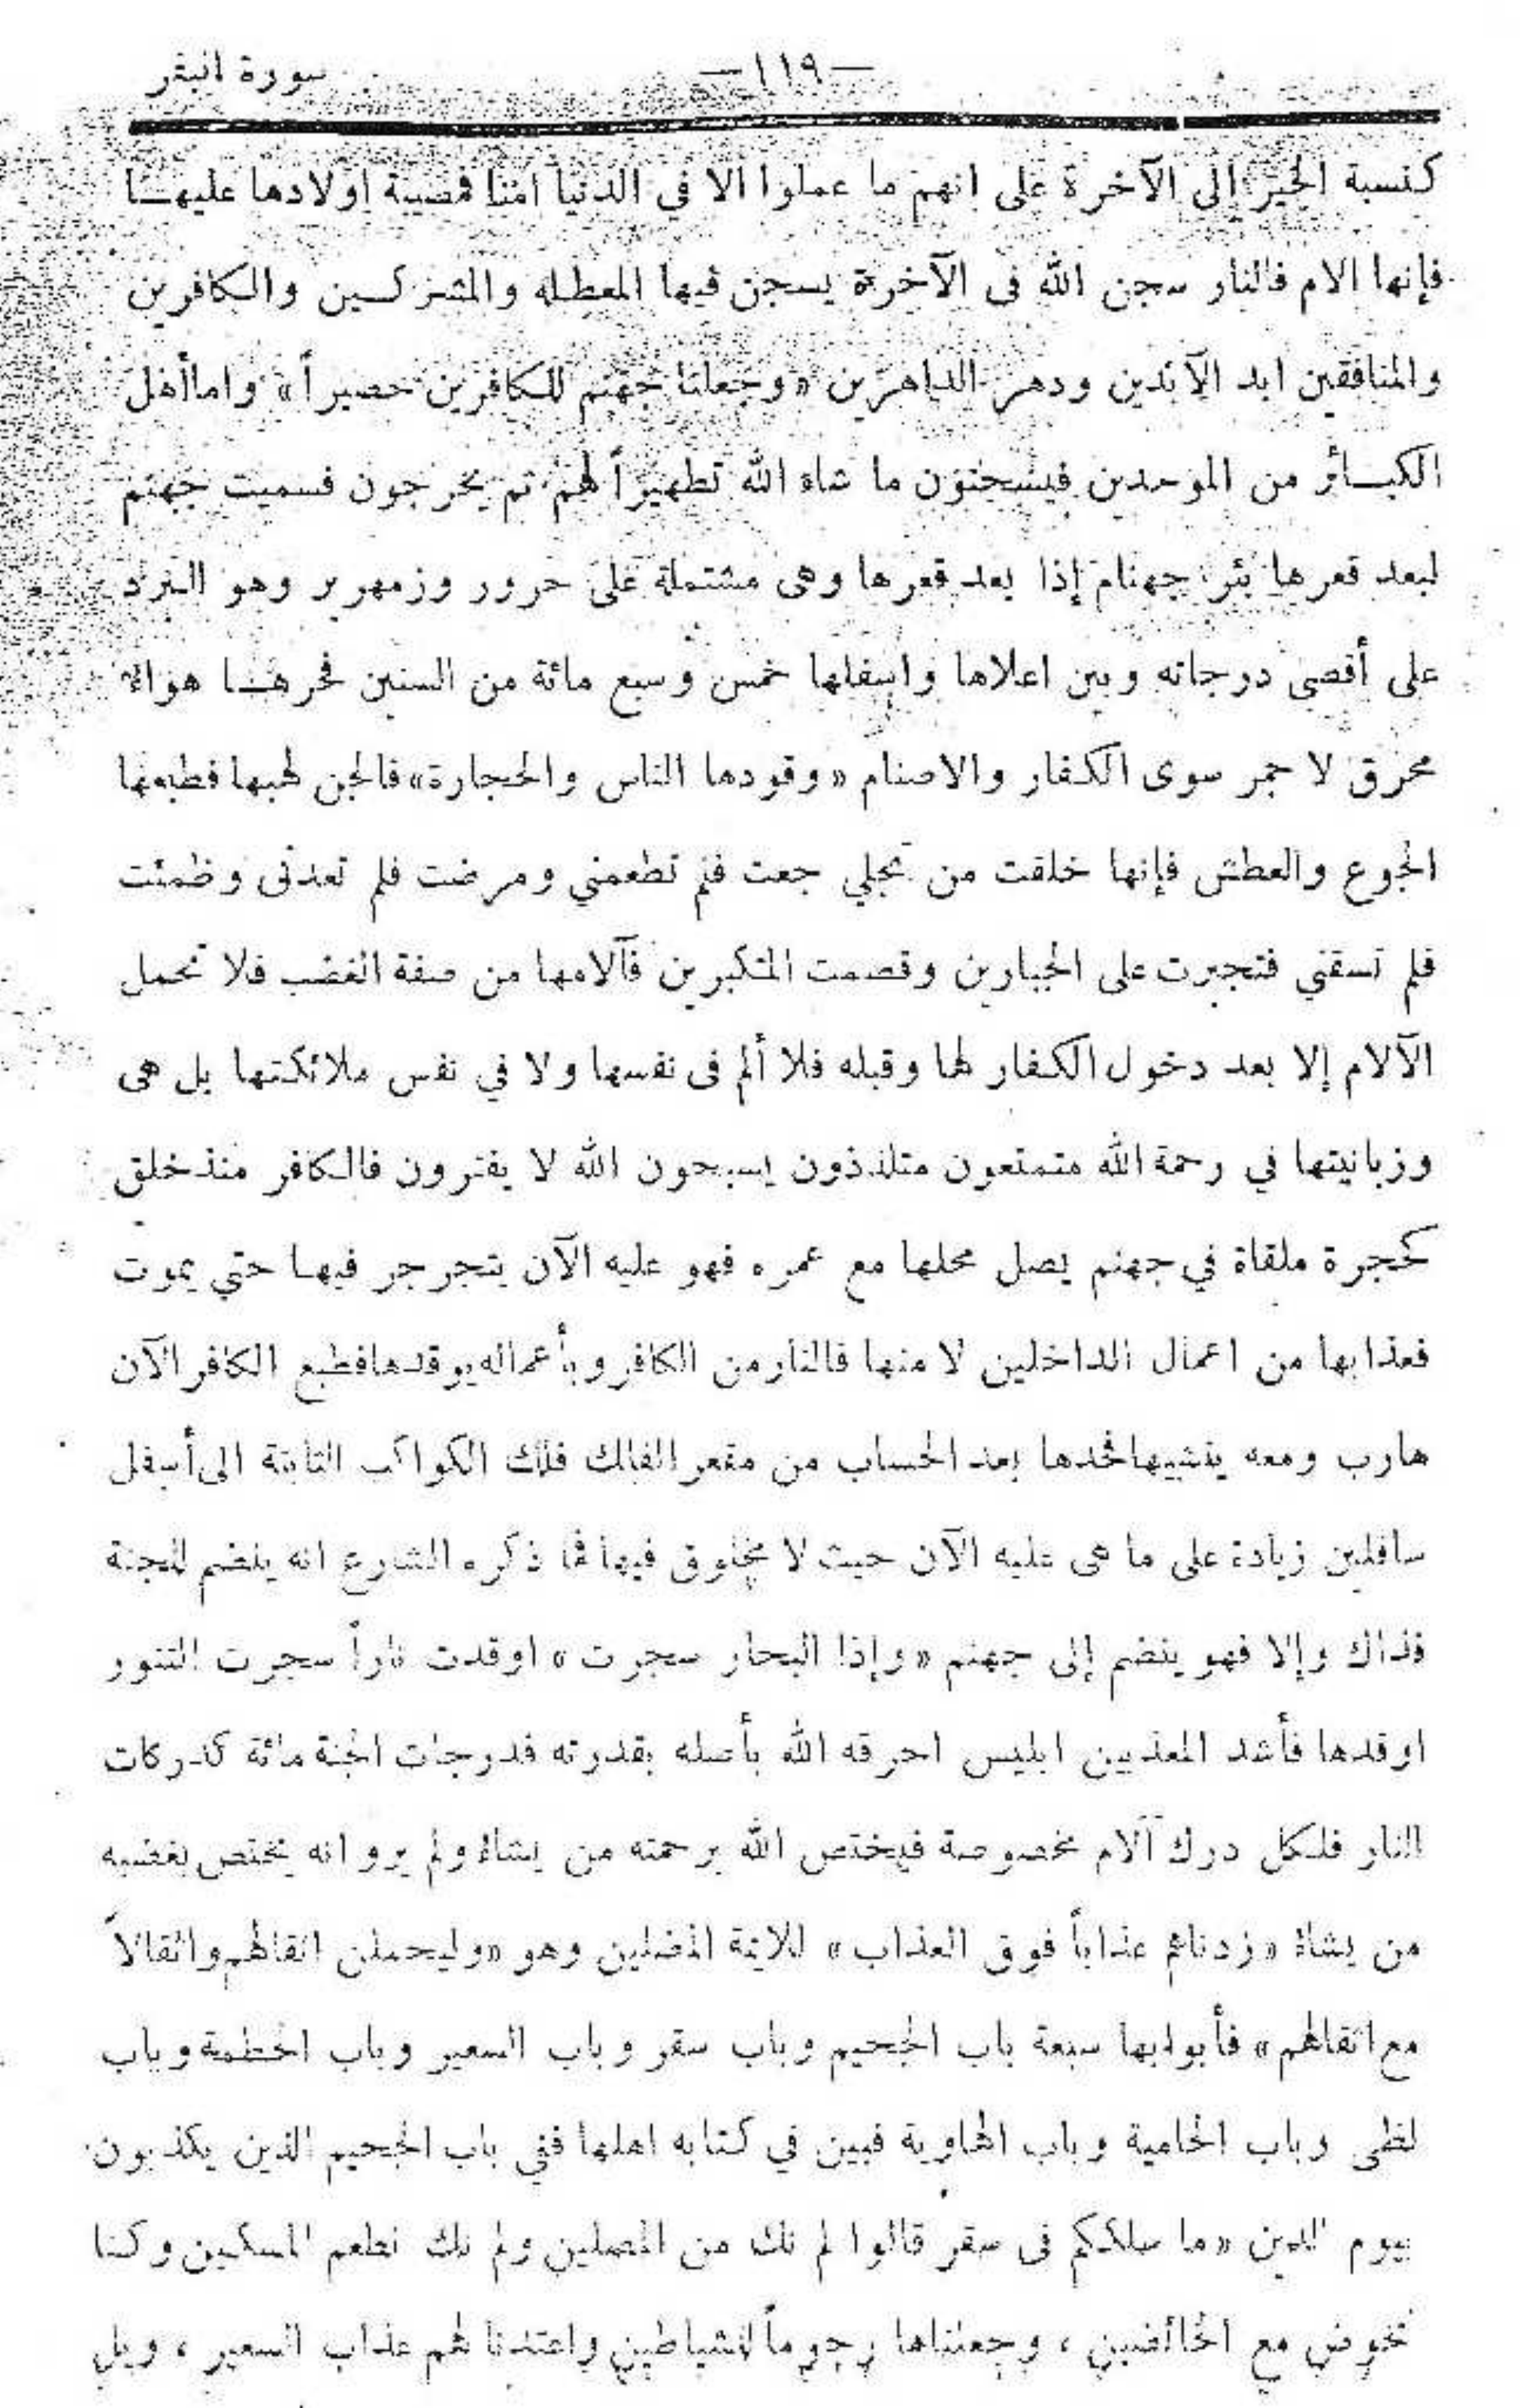 سورة البقر
—١١٩—
كنسبة الخير إلى الآخرة على انهم ما عملوا الا في الدنيا امنا فمصيبة اولادها عليهـا
فإنها الام فالنار سجن الله في الآخرة يسجن فيها المعطله والمشركـين والكافرين
والمنافقين ابد الآبدين ودهر الداهرين «وجعلنا جهنم للكافرين حصيراً» واما أهل
الكبـائر من الموحدين فيسجنون ما شاء الله تطهيراً لهم ثم يخرجون فسميت جهنم
لبعد قعرها بئر جهنام إذا بعد قعرها وهي مشتملة على حرور وزمهرير وهو البرد
على أقصى درجاته وبين اعلاها واسفلها خمس وسبع مائة من السنين فحرهـا هواء
محرق لا جمر سوى الكفار والاصنام «وقودها الناس والحجارة» فالجن لهبها فطبعها
الجوع والعطش فإنها خلقت من تجلي جعت فلم تطعمني ومرضت فلم تعدني وظمئت
فلم تسقني فتجبرت على الجبارين وقصمت المتكبرين فآلامها من صفة الغضب فلا تحمل
الآلام إلا بعد دخول الكفار لها وقبله فلا ألم في نفسها ولا في نفس ملائكتها بل هي
وزبانيتها في رحمة الله متمتعون متلذذون يسبحون الله لا يفترون فالكافر منذ خلق
كحجرة ملقاة في جهنم يصل محلها مع عمره فهو عليه الآن يتجرجر فيهـا حتي يموت
فعذابها من اعمال الداخلين لا منها فالنار من الكافر وبأعماله يوقدها فطبع الكافر الآن
هارب ومعه فحدها بعد الحساب من مقعر الفلك فلك الكواكب الثابتة الى أسفل
سافلين زيادة على ما هي عليه الآن حيث لا مخلوق فيها فما ذكره الشارع انه ينضم للجنة
فذاك وإلا فهو ينضم إلى جهنم «وإذا البحار سجرت» اوقدت ناراً سجرت التنور
اوقدها فأشد المعذبين ابليس احرقه الله بأصله بقدرته فدرجات الجنة مائة كدركات
النار فلكل درك آلام مخصوصة فيختص الله برحمته من يشاء ولم يرو انه يختص بغضبه
من يشاء «زدناهم عذاباً فوق العذاب» للايمة المضلين وهو «وليحملن اثقالهم واثقالاً
مع اثقالهم» فأبوابها سبعة باب الجحيم وباب سقر وباب السعير وباب الحطمة وباب
لظى وباب الحامية وباب الهاوية فبين في كتابه اهلها ففي باب الجحيم الذين يكذبون
بيوم الدين «ما سلككم في سقر قالوا لم نك من المصلين ولم نك نطعم المسكين وكنا
نخوض مع الخائضين ، وجعلناها رجوماً للشياطين واعتدنا لهم عذاب السعير ، ويل